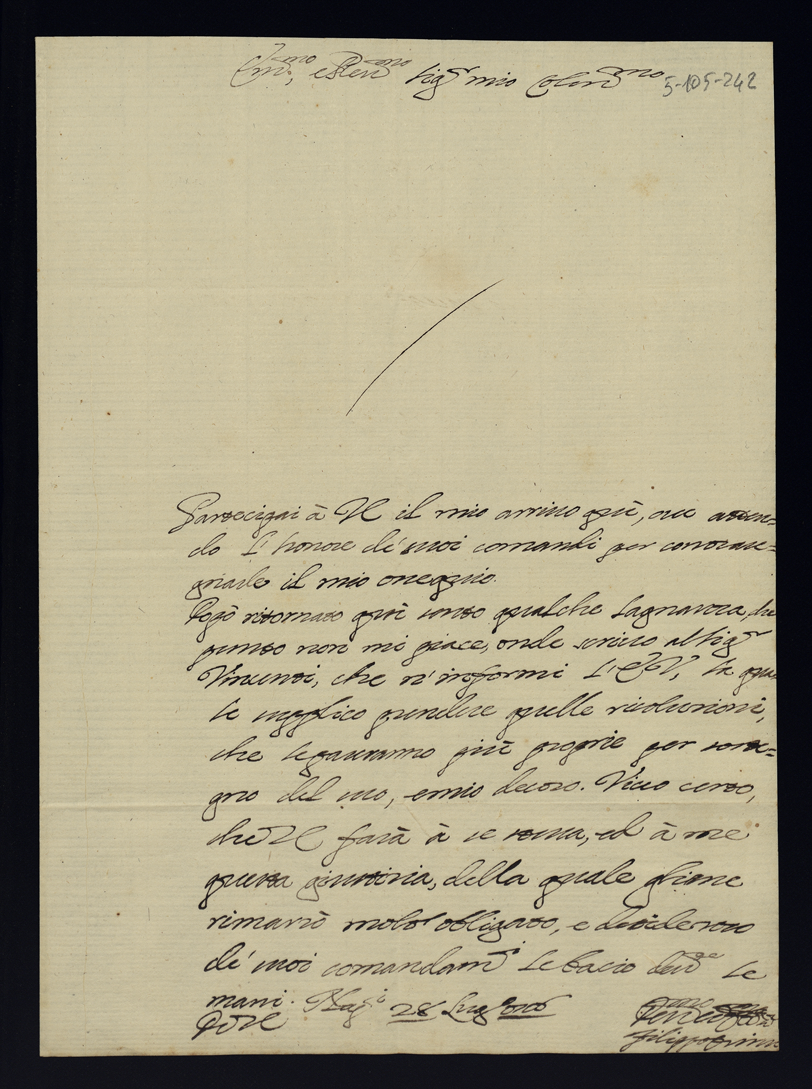 Em.mo, e Reu.mo Sig.r mio Colen.mo
5-105-242
Partecipai à VE il mio arriuo quì, oue atten=
do l'honore de' suoi comandi per contrase=
gnarle il mio ossequio.
ritornato quì sento qualche
punto non mi piace, onde scriuo al Sig.r
Vincenti, che n'informi l'E V, la qua
le supplico prendere quelle risolutioni,
che le parranno più proprie per soste=
gno del suo, e mio decoro. Viuo certo,
che VE farà à se stessa, ed à me
questa giustitia, della quale gliene
rimarrò molto obligato, e desideroso
de' suoi comandam.ti le bacio le
mani. 28 Lug.
Di VE
Filippo